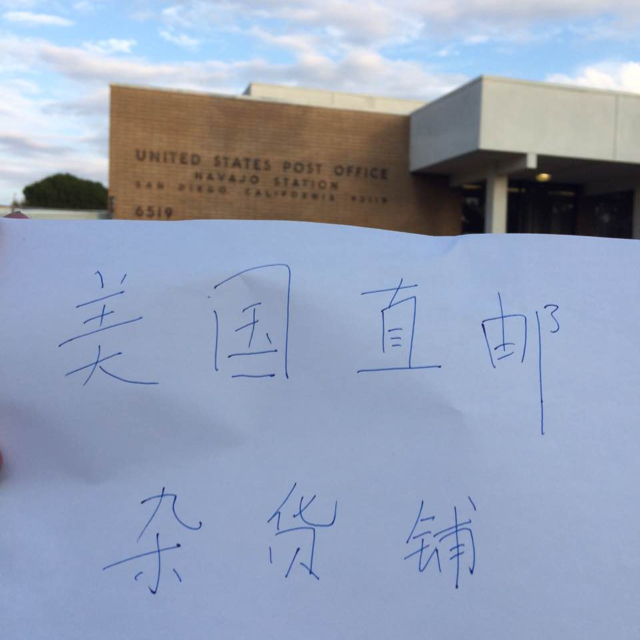 UNITED STATES POST OFFICE
NAVAJO STATION
SAN DIEGO, CALIFORNIA 92119
6519
美国直邮
杂货铺